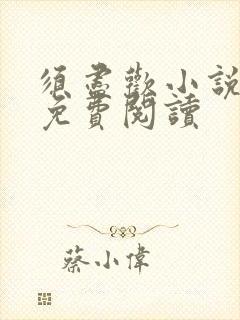 須盡歡小說
免費閱讀
蔡小偉